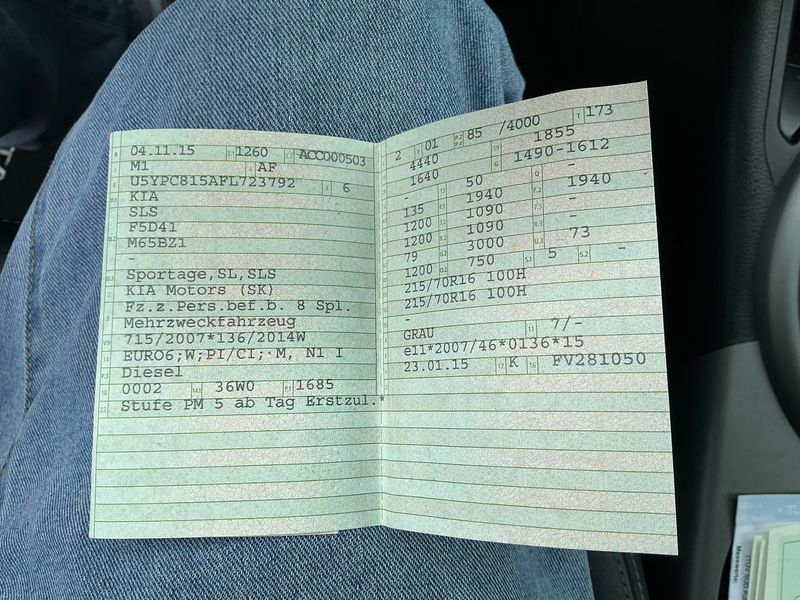 04.11.15 1260 ACC000503
M1 AF
U5YPC815AFL723792 6
KIA
SLS
F5D41
M65BZ1
-
Sportage,SL,SLS
KIA Motors (SK)
Fz.z.Pers.bef.b. 8 Spl.
Mehrzweckfahrzeug
715/2007*136/2014W
EURO6;W;PI/CI; M, N1 I
Diesel
0002 36W0 1685
Stufe PM 5 ab Tag Erstzul.*
2 01 85 /4000 173
4440 1855
1640 1490-1612
- 50 -
135 1940 1940
1200 1090 -
1200 1090 -
79 3000 73
1200 750 5 -
215/70R16 100H
215/70R16 100H
-
GRAU 7/-
e11*2007/46*0136*15
23.01.15 K FV281050